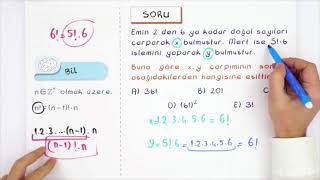 6! = 5!.6
BİL
n∈Z⁺ olmak üzere,
n! = (n-1)!.n
1.2.3...(n-1).n
(n-1)!.n
SORU
Emin 2 den 6 ya kadar doğal sayıları
çarparak x bulmuştur. Mert ise 5!.6
işlemini yaparak y bulmuştur.
Buna göre x.y çarpımının son
aşağıdakilerden hangisine eşittir
A) 36! B) 20!
D) (6!)²
x=1.2.3.4.5.6 = 6!
y=5!.6 = 1.2.3.4.5.6 = 6!